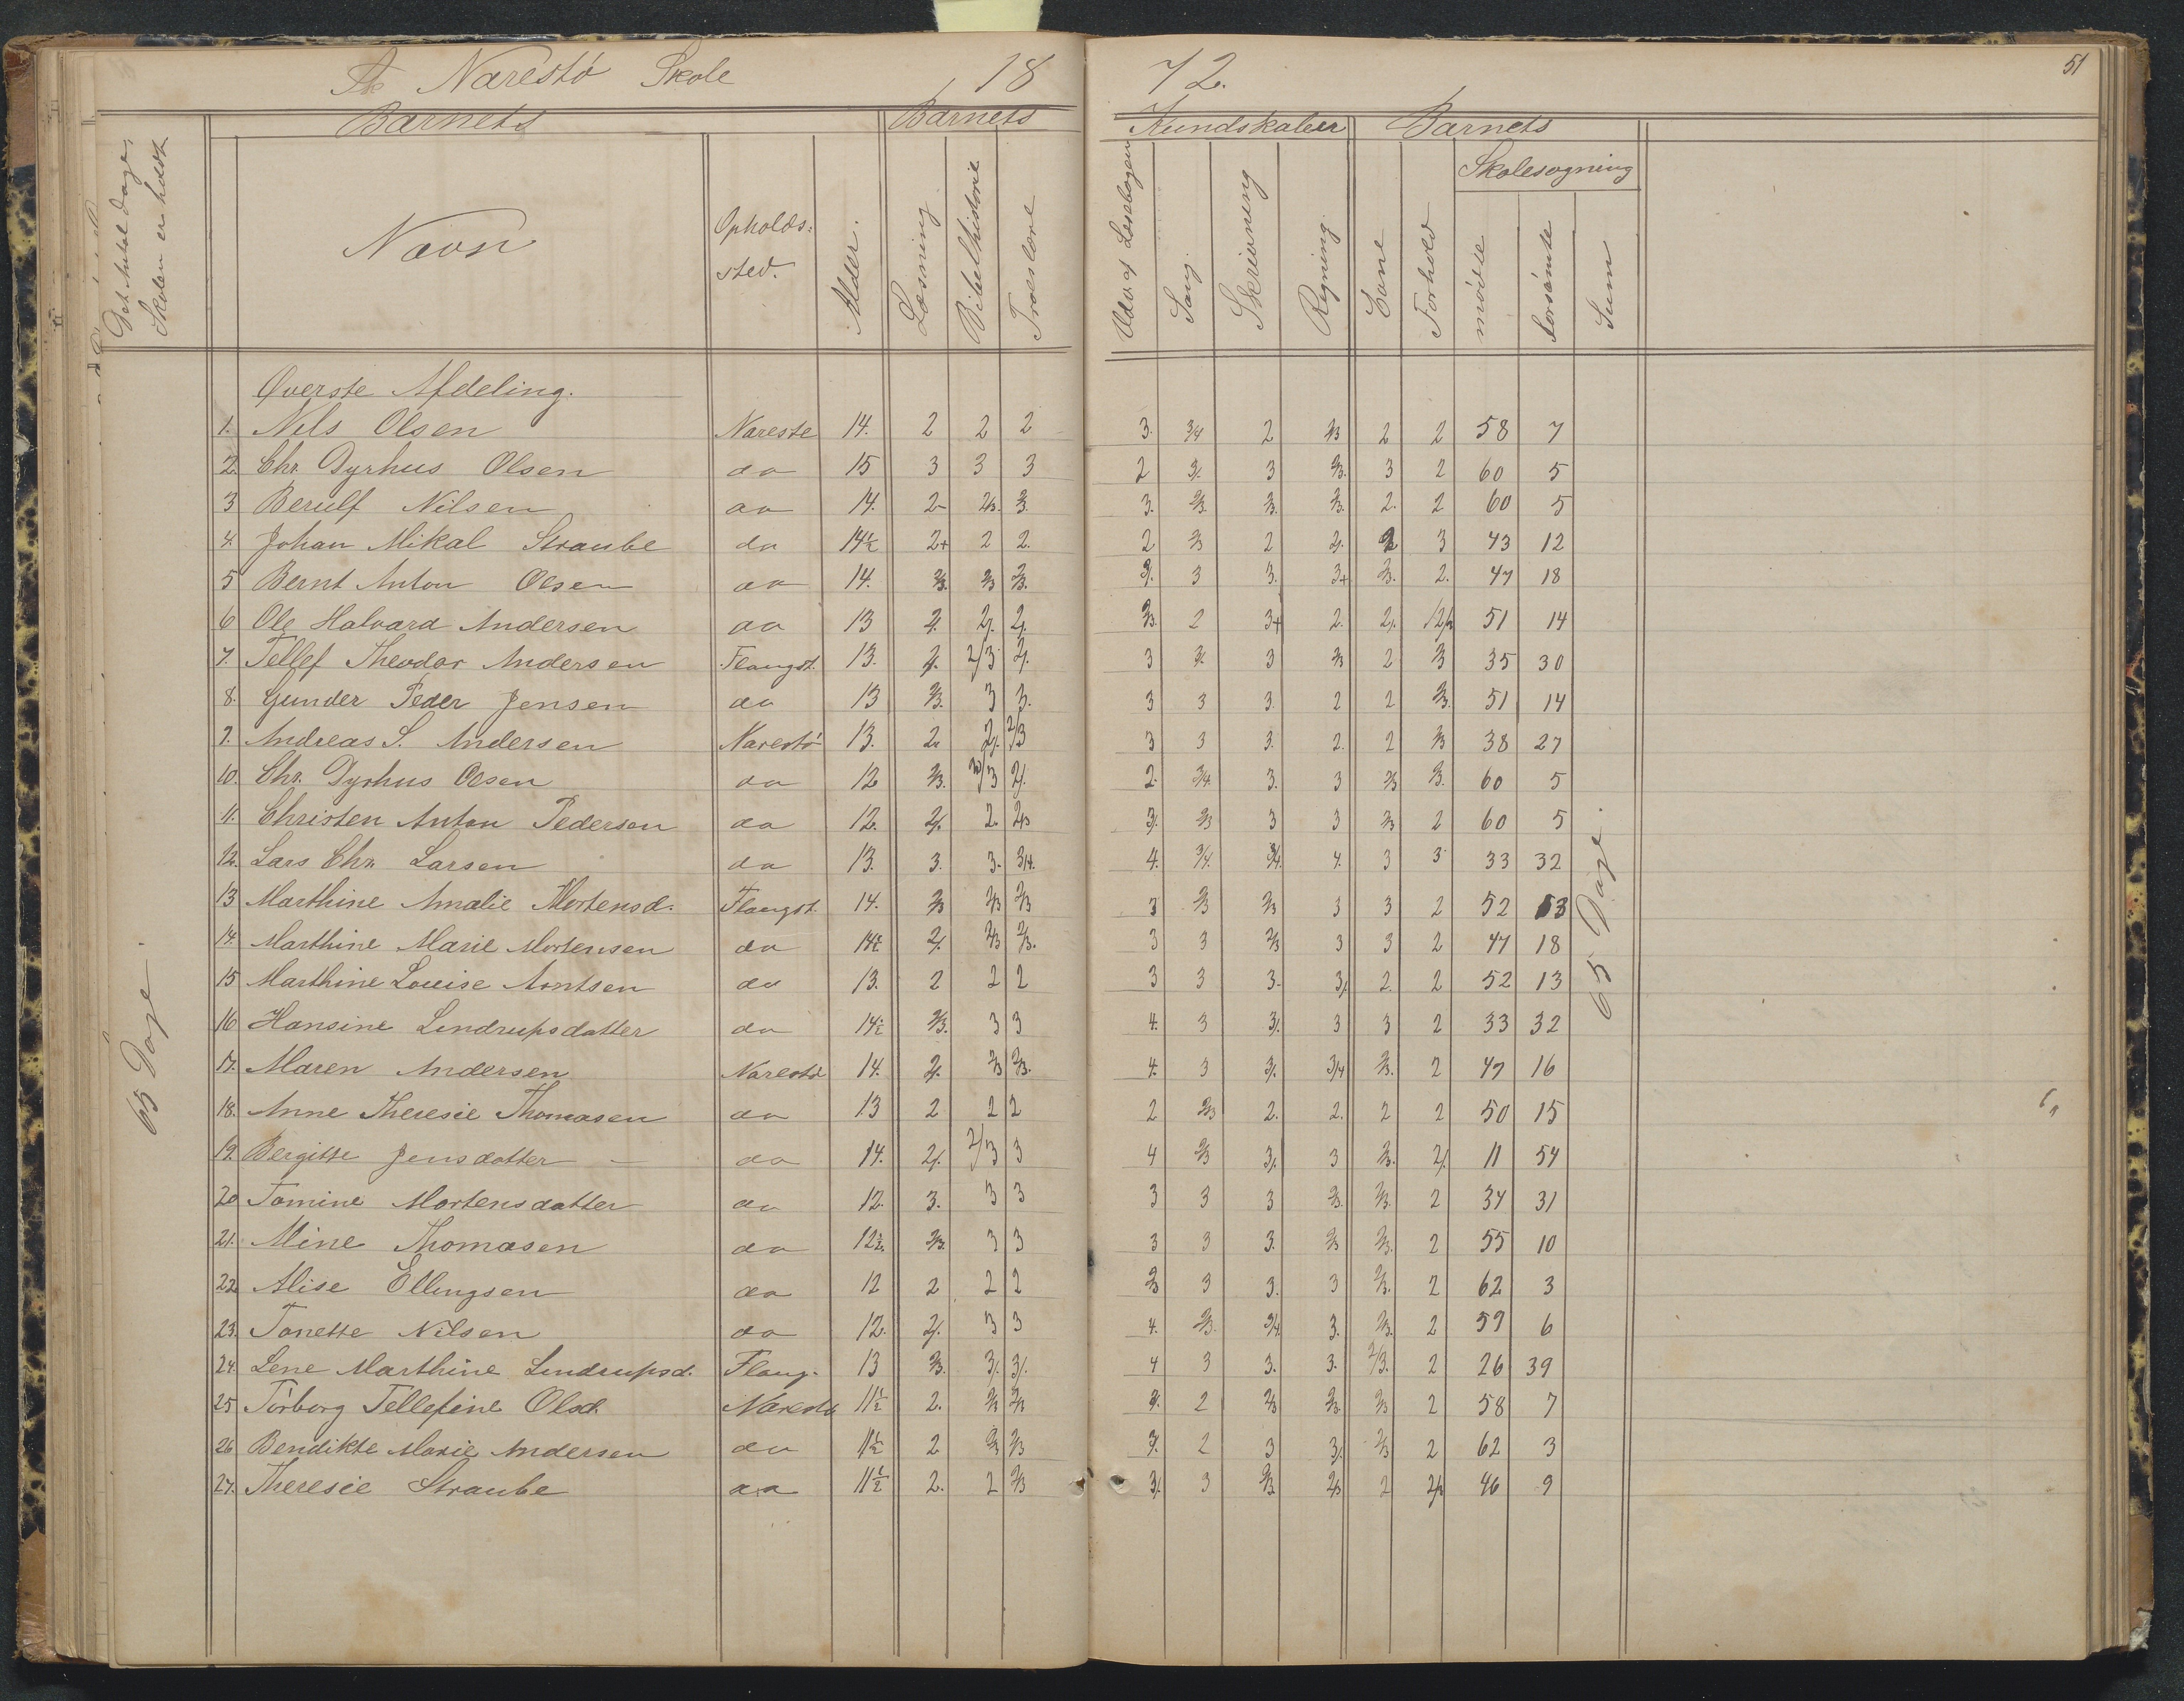 Narestø Skole 1872.
51
Barnets Barnets Kundskaber Barnets
Det Antal Dage, Skolen er holdt
Navn
Opholds-
sted.
Alder.
Læsning
Bibelhistorie
Troeslære
Udv. af Læsebogen
Sang
Skrivning
Regning
Evne
Forhold
Skolesøgning
mødte
forsømte
Sum
Øverste Afdeling.
1. Nils Olsen Narestø 14. 2 2 2 3. 3/4 2 2/3 2 2 58 7
2. Chr. Dyrhus Olsen do 15 3 3 3 2 3/. 3 2/3. 3 2 60 5
3 Berulf Nilsen do 14. 2- 2/3. 2/3. 3. 2/3. 2/3. 2/3. 2. 2 60 5
4. Johan Mikal Straube do 14½ 2+ 2 2. 2 2/3 2 2/. 2 3 43 12
5 Bernt Anton Olsen do 14. 2/3. 2/3 2/3. 3/. 3 3. 3+ 2/3. 2. 47 18
6 Ole Halvard Andersen do 13 2/. 2/. 2/. 2/3. 2 3+ 2. 2/. 51 14
7. Tellef Theodor Andersen Flangst. 13. 2/. 2/3 2/. 3 3/. 3 2/3 2 2/3 35 30
8. Gunder Peder Jensen do 13 2/3. 3 3. 3 3 3. 2 2 2/3. 51 14
9. Andreas S. Andersen Narestø 13. 2. 2/. 2/3 3 3 3. 2. 2 2/3 38 27
10. Chr. Dyrhus Olsen do 12 2/3. 2/3 2/. 2. 3/4. 3. 3 2/3 2/3. 60 5
11. Christen Anton Pedersen do 12. 2/. 2. 2/3 3/. 2/3 3 3 2/3 2 60 5
12. Lars Chr. Larsen do 13. 3. 3. 3/4. 4. 3/4. 3/4. 4. 3 3 33 32
13 Marthine Amalie Mortensd. Flangst. 14. 2/3 2/3 2/3 3 2/3 2/3 3 3 2 52 13
14. Marthine Marie Mortensen do 14½ 2/. 2/3 2/3. 3 3 2/3 3 3 2 47 18
15 Marthine Louise Arntsen do 13. 2 2 2 3 3 3- 3/. 2. 2 52 13
16 Hansine Lendrupsdatter do 14½ 2/3. 3 3 4. 3 3/. 3 3 2 33 32
17. Maren Andersen Narestø 14. 2/. 2/3 2/3. 4. 3 3/. 3/4 2/3. 2 47 16
18. Anne Theresie Thomasen do 13 2 2 2 2 2/3 2. 2. 2 2 50 15
19. Bergitte Jensdatter do 14. 2/. 2/3 3 4 2/3 3/. 3 2/3. 2/. 11 54
20 Tomine Mortensdatter do 12. 3. 3 3 3 3 3 2/3. 2/3. 2 34 31
21. Mine Thomasen do 12½ 2/3. 3 3 3 3 3. 2/3 2/3. 2 55 10
22 Alise Ellingsen do 12 2 2 2 2/3 3 3. 3 2/3. 2 62 3
23. Tonette Nilsen do 12. 2/. 3 3 4. 2/3. 3/4 3. 2/3. 2 59 6
24. Lene Marthine Lendrupsd. Flang. 13 2/3. 3/. 3/. 4 3 3. 3. 2/3. 2 26 39
25 Torborg Tellefine Olsd. Narestø 11½ 2. 2/3 2/3 3/. 2 2/3 2/3. 2/3 2 58 7
26 Bendikte Marie Andersen do 11½ 2 2/3 2/3 3/. 2 3 3/. 2/3 2 62 3
27. Theresie Straube do 11½ 2. 2 2/3 3/. 3 2/3 2/3 2 46 9
65 Dage.
65 Dage.